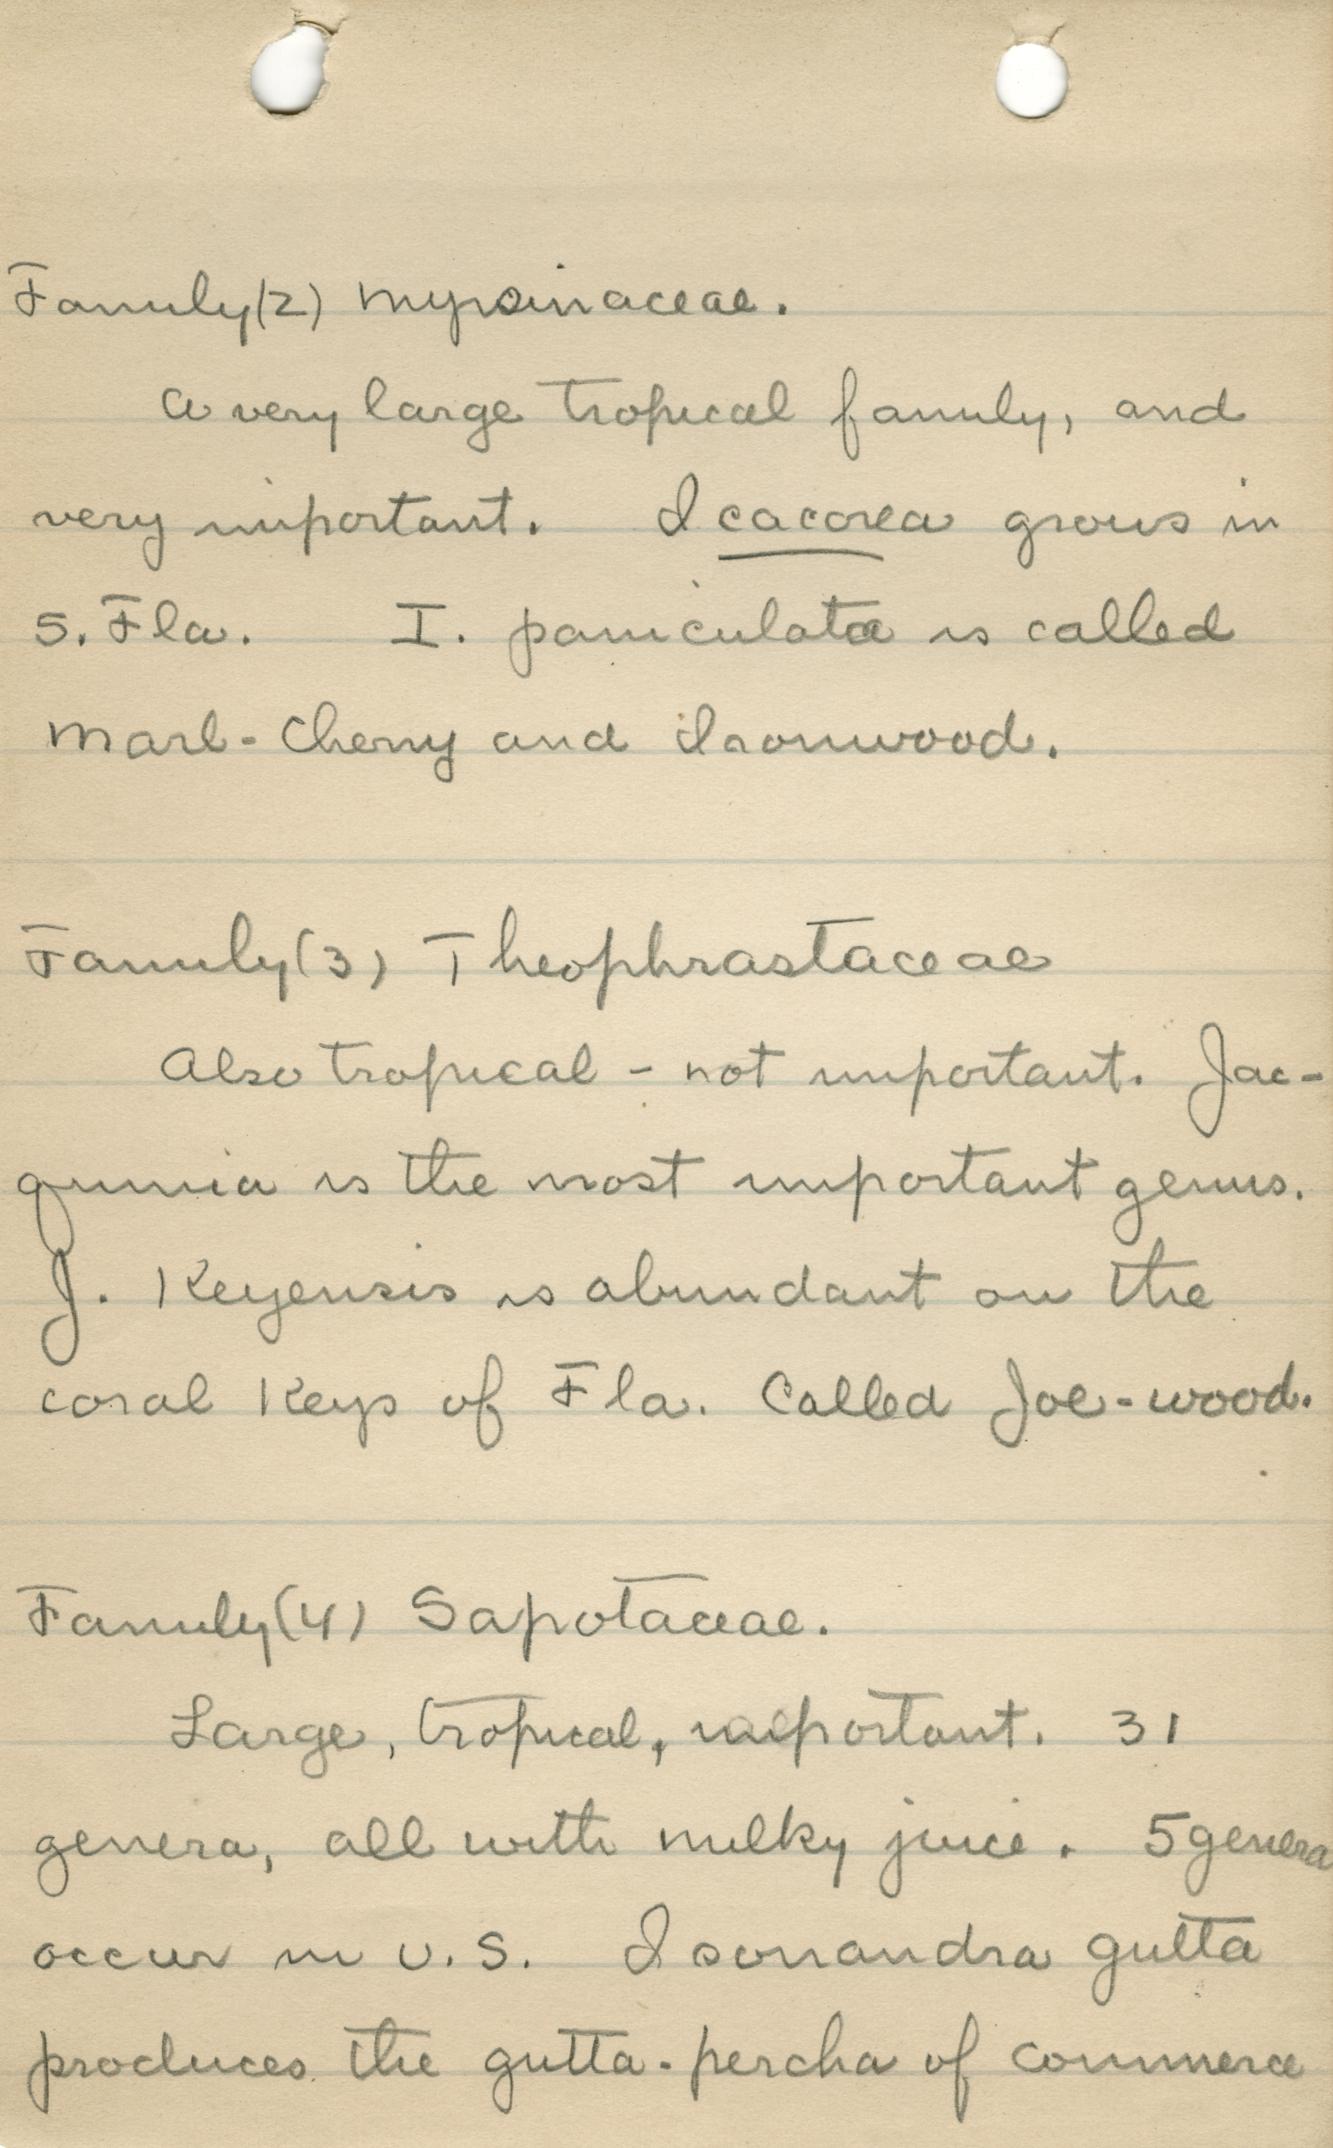 Family (2) Myrsinaceae.
A very large tropical family, and
very important. Icacorea grows in
S. Fla. I. paniculata is called
Marl-Cherry and Ironwood.
Family (3) Theophrastaceae
Also tropical - not important. Jac-
quinia is the most important genus.
J. Keyensis is abundant on the
coral Keys of Fla. Called Joe-wood.
Family (4) Sapotaceae.
Large, tropical, important. 31
genera, all with milky juice. 5 genera
occur in U.S. Isonandra gutta
produces the gutta-percha of commerce